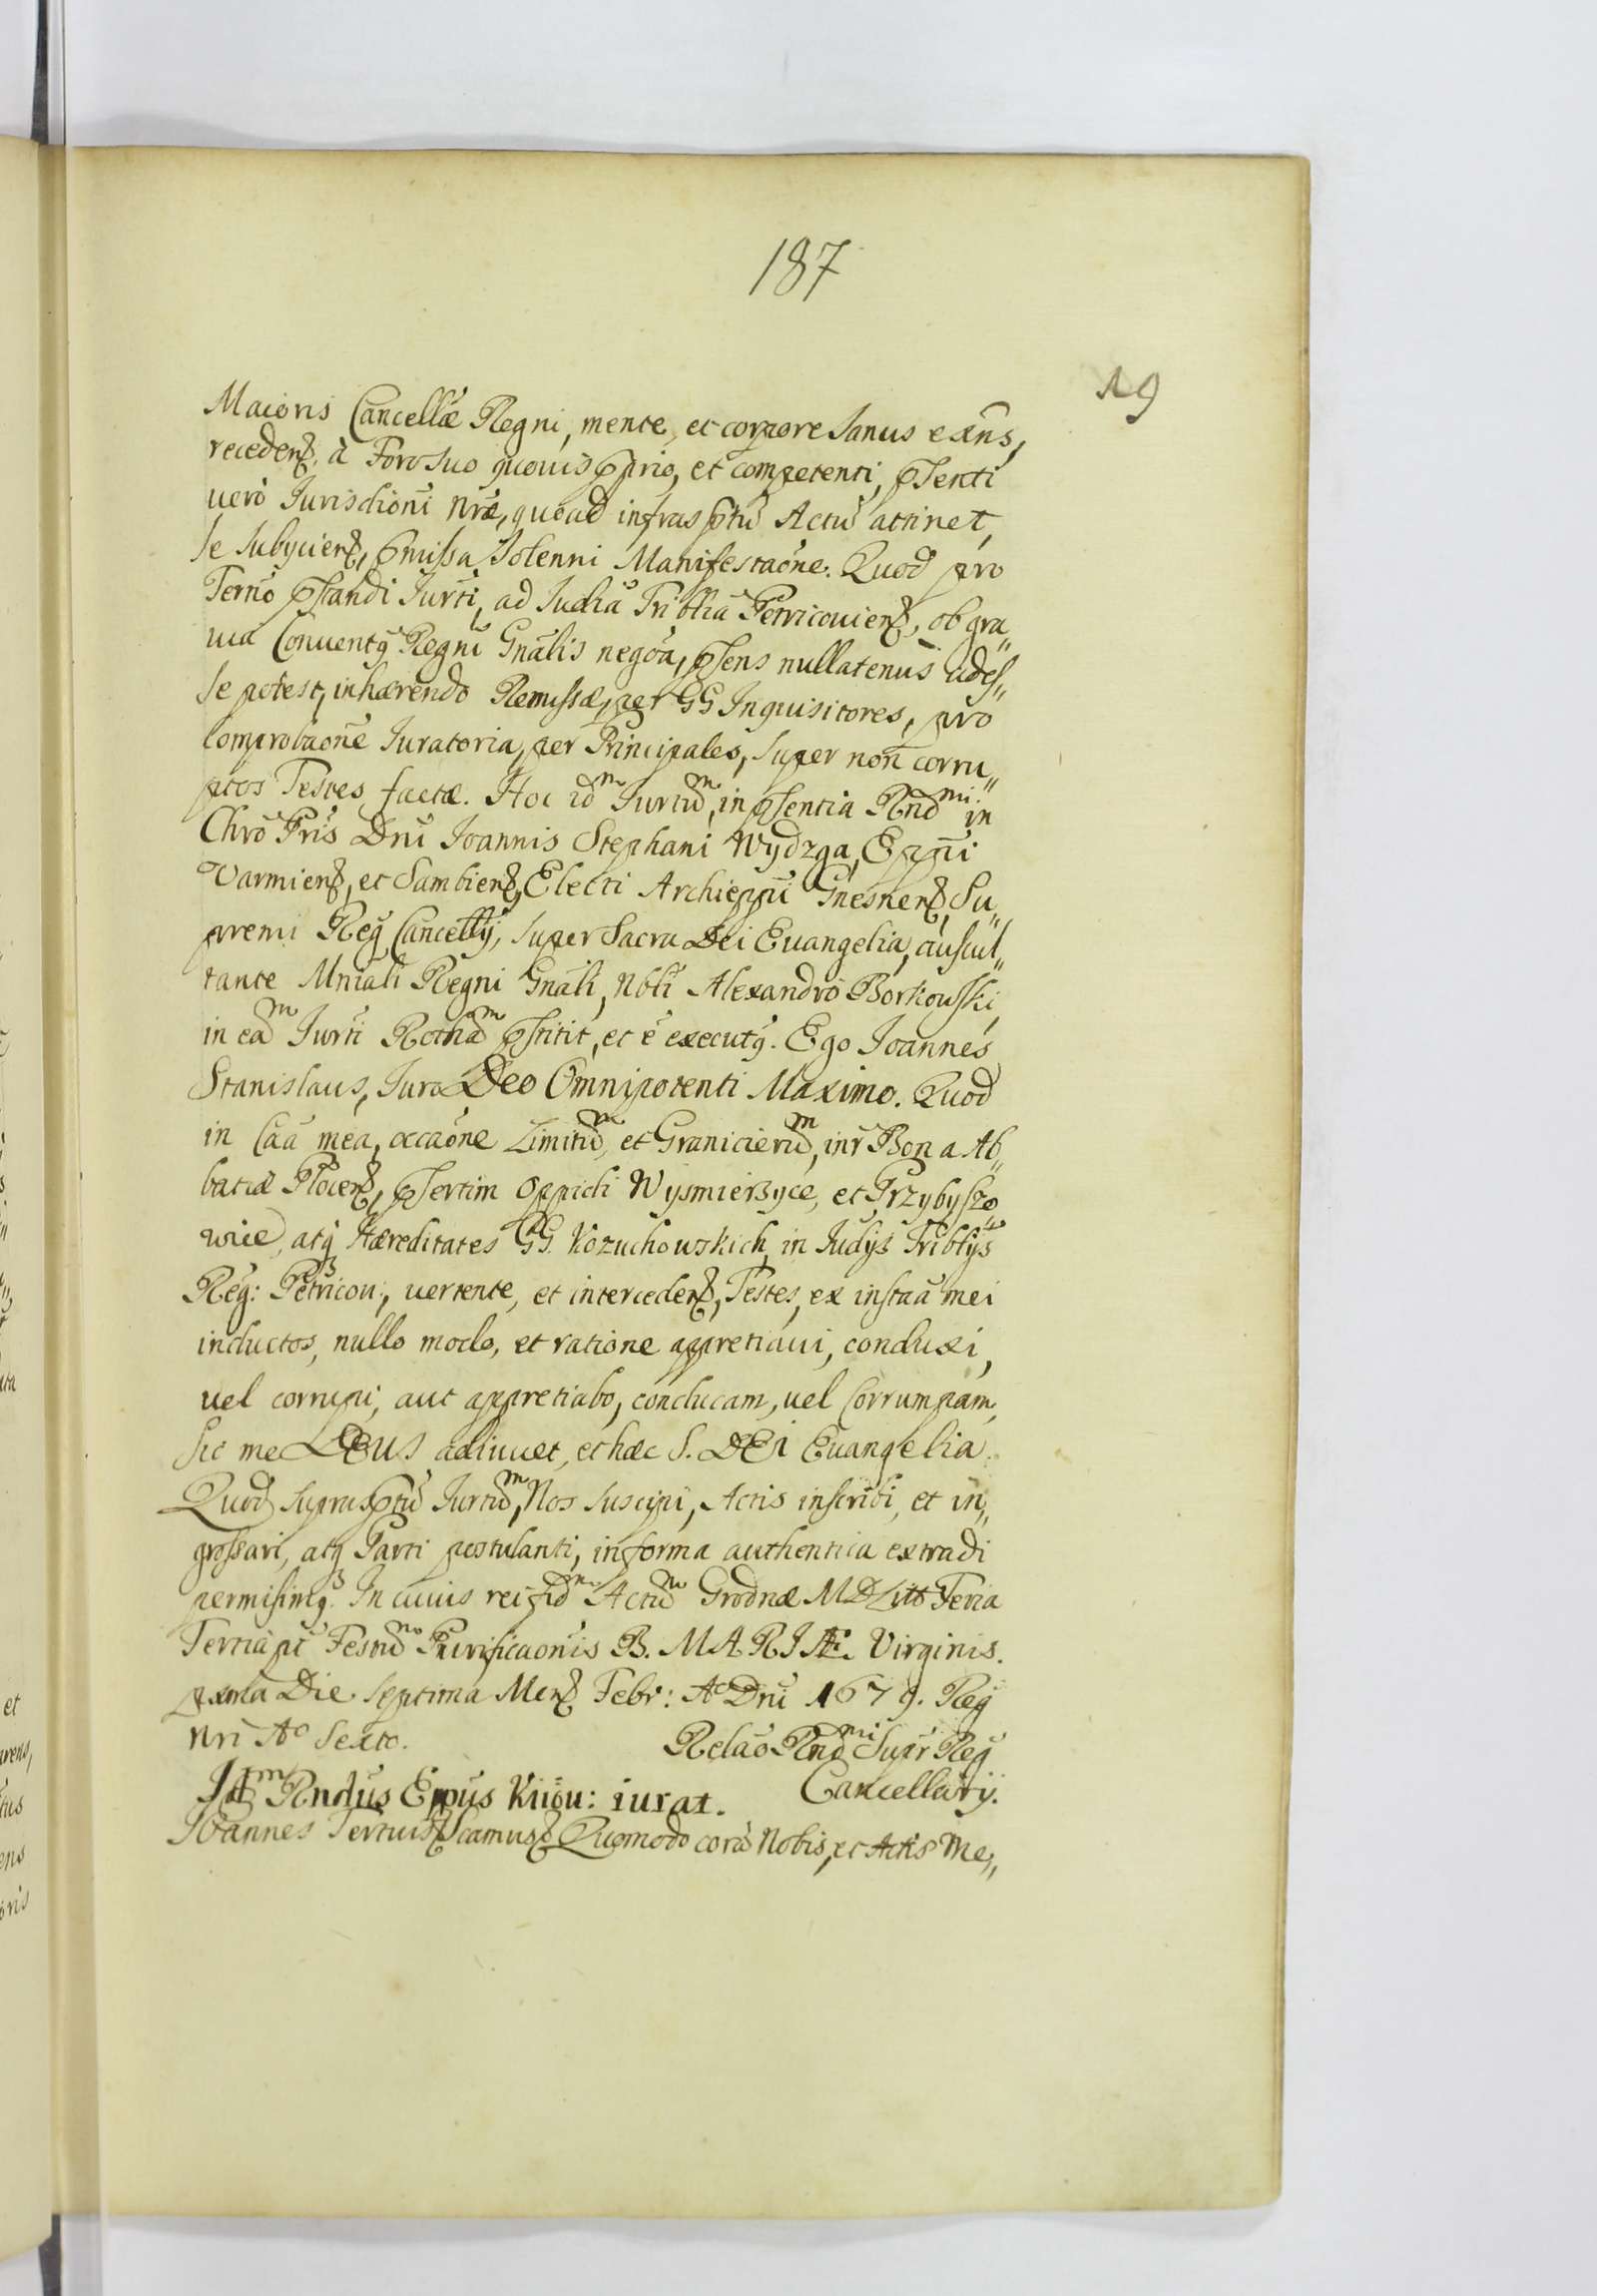 187
19
Maioris Cancellæ Regni, mente, et corpore sanus exñs,
recedenß, à Foro suo quouis pprio, et competenti, psenti
uerò Iurisdioni nræ, quoad infrasptũ Actũ attinet,
se subyciens, pmissa solenni Manifestaõne. Quod pro
Termo pstandi Iurti, ad Iudia Triblia Petricouienß, ob gra„
uia Conuentꝯ Regni Gnãlis negoã, psens nullatenus ades„
se potest, inhærendo Remissæ, per GG Inquisitores, pro
comprobaõne Iuratoria, per Principales, super non corru„
ptos Testes, factæ. Hoc idm Iurtũm, in psentia Rndmi in
Chro Pris Dni Ioannis Stephani Wydzga, Eppi
Varmienß, et Sambienß, Electi Archieppi Gnesnenß, Su„
premi Reg Cancellÿ, super Sacra Dei Euangelia, auscul„
tante Mniali Regni Gnãli, Nbli Alexandro Borkouski,
in eam Iurti Rotham pstitit, et e executꝯ. Ego Ioannes
Stanislaus, Iuro Deo Omnipotenti Maximo. Quod
in Caã mea, occaõne Limitũm, et Granicierũm, intr Bona Ab„
batiæ Plocenß, psertim Oppidi Wysmierzyce, et Przybyszo„
wice, atqꝫ Hæreditates GG. Kozuchowskich, in Iudÿs Triblÿs
Reg: Petricou:, uertente, et intercedenß, Testes, ex instaã mei
inductos, nullo modo, et ratione appretiaui, conduxi,
uel corrupi, aut appretiabo, conducam, uel Corrumpam,
sic me DEUS adiuuet, et hæc S. DEI Euangelia.
Quod suprasptũ Iurtũm, Nos suscipi, Actis inscribi, et in„
grossari, atqꝫ Parti postulanti, in forma authentica extradi
permisimꝯ. In cuius rei fidm Actũm Grodnæ MDLitt Feria
Tertia pt Festũm Purificaõnis B. MARIÆ Virginis.
pxma Die Septima Menß Febr: Ao Dni 1679. Reg
Nri Ao Sexto.
Relaõ Rndmi Supr Reg
Cancellarÿ.
Idm Rndus Eppus Kiiou: iurat.
Ioannes Tertius Scamus Quomodo corã Nobis, et Actis Me„